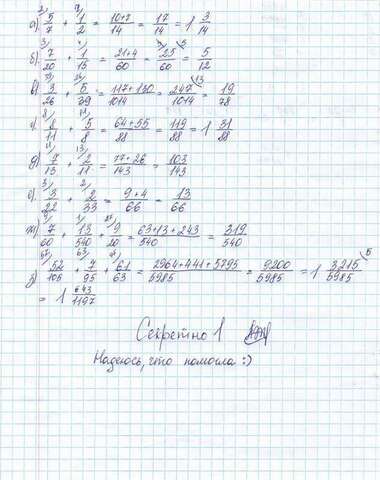 а) 5/7 + 1/2 = 10+7/14 = 17/14 = 1 3/14
б) 7/20 + 1/15 = 21+4/60 = 25/60 = 5/12
в) 3/26 + 5/39 = 117+130/1014 = 247/1014 = 19/78
г) 8/11 + 5/8 = 64+55/88 = 119/88 = 1 31/88
д) 7/13 + 2/11 = 77+26/143 = 103/143
е) 3/22 + 2/33 = 9+4/66 = 13/66
ж) 7/60 + 13/540 + 9/20 = 63+13+243/540 = 319/540
з) 52/105 + 7/95 + 61/63 = 2964+441+5795/5985 = 9200/5985 = 1 3215/5985
= 1 643/1197
Секретно 1
Надеюсь, что помогла :)